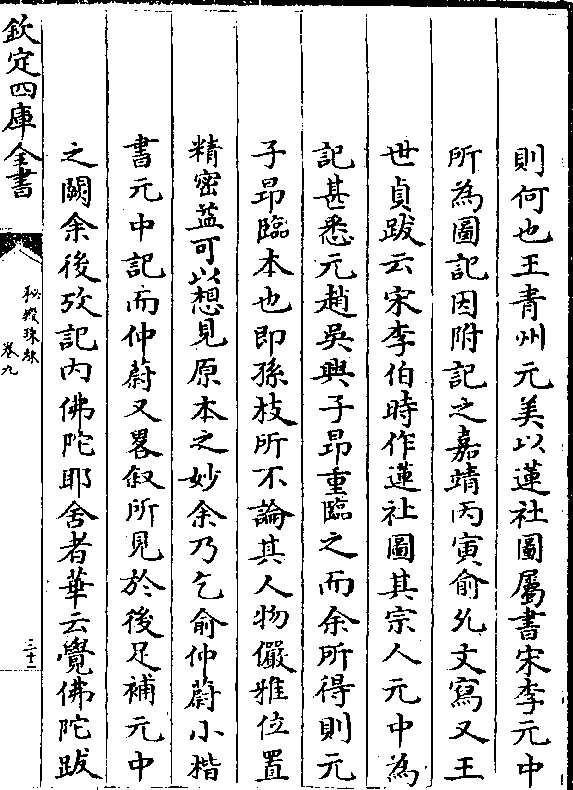 則何也王青州元美以蓮社圖屬書宋李元中
所為圖記因附記之嘉靖丙寅俞允文寫又王
世貞跋云宋李伯時作蓮社圖其宗人元中為
記甚悉元趙吳興子昂重臨之而余所得則元
子昂臨本也即孫枝所不論其人物儼雅位置
精密葢可以想見原本之妙余乃乞俞仲蔚小楷
書元中記而仲蔚又畧叙所見於後足補元中
之闕余後攷記内佛陀耶舍者華云覺佛陀跋
欽定四庫全書
秘殿珠林
卷九
三十二